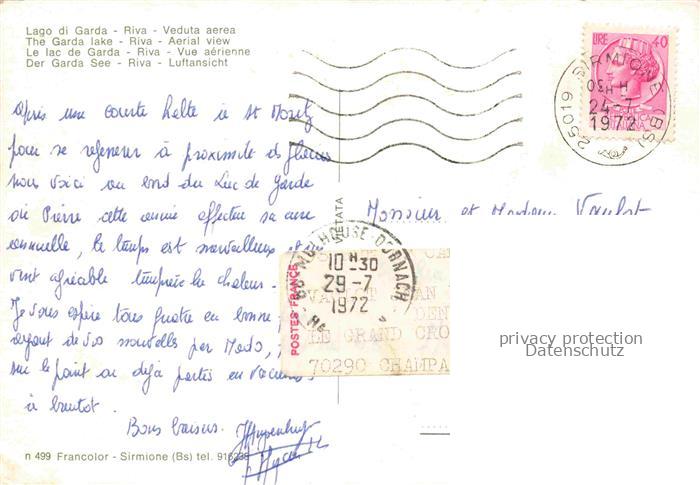 Lago di Garda - Riva - Veduta aerea
The Garda lake - Riva - Aerial view
Le lac de Garda - Riva - Vue aérienne
Der Garda See - Riva - Luftansicht
après une courte halte à St Moritz
pour se refrener à proximité ds glaciers
nous voici au bord du Lac de Garde
où Pierre cette année effectue sa cure
annuelle, le temps est merveilleux et un
vent agréable tempère la chaleur.
Je vous espère tous quatre en bonne
ayant de vos nouvelles par Mado,
sur le point ou déjà partis en vacances
à bientot.
Bons baisers.
n 499 Francolor - Sirmione (Bs) tel. 916238
VIETATA
LIRE 40
25019 SIRMIONE (BS)
24-7
1972
Monsieur et Madame
68 MULHOUSE-DORNACH
10H30
29-7
1972
POSTES FRANCE
LE GRAND CRO
70290 CHAMPA
privacy protection
Datenschutz